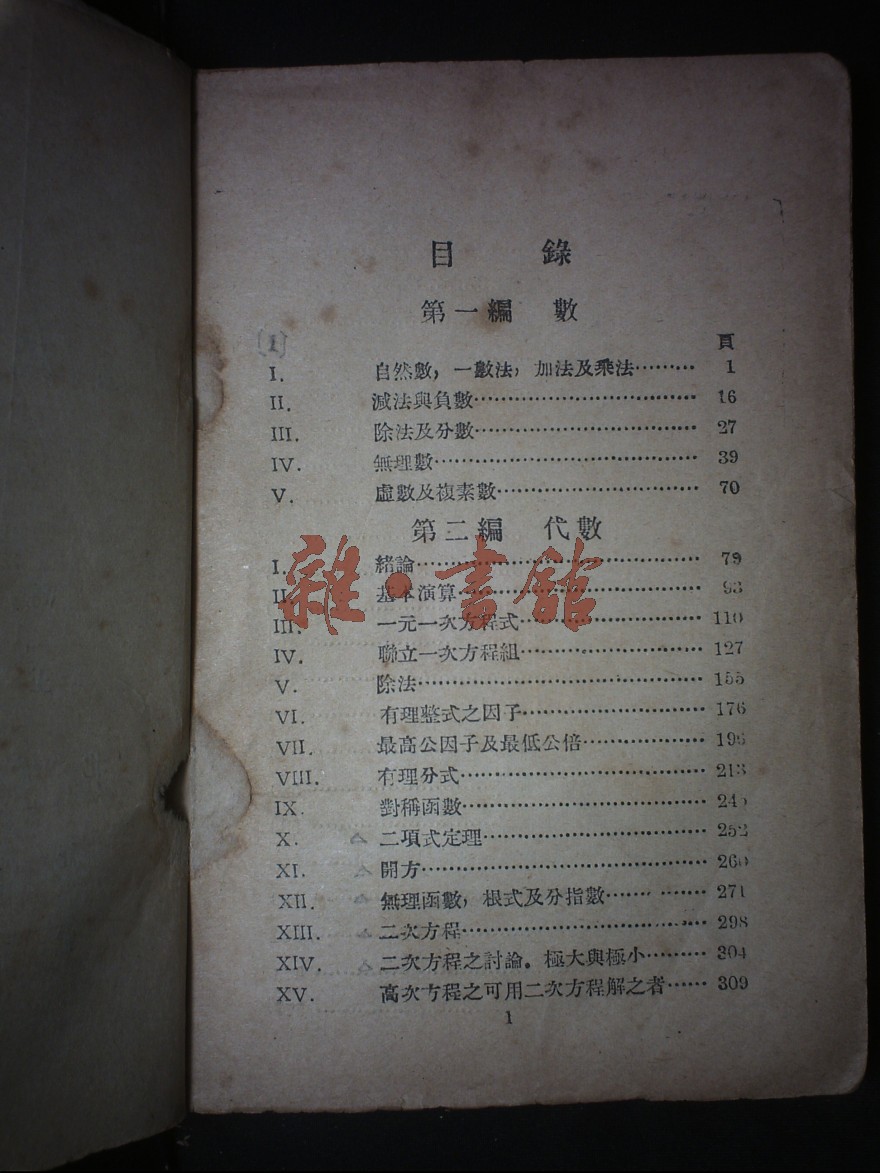 目 錄
第一編 數
[1] 頁
I. 自然數，一數法，加法及乘法……… 1
II. 減法與負數…………………………… 16
III. 除法及分數…………………………… 27
IV. 無理數………………………………… 39
V. 虛數及複素數………………………… 70
第二編 代數
I. 緒論…………………………………… 79
II. 基本演算……………………………… 93
III. 一元一次方程式……………………… 110
IV. 聯立一次方程組……………………… 127
V. 除法…………………………………… 155
VI. 有理整式之因子……………………… 176
VII. 最高公因子及最低公倍……………
VIII. 有理分式……………………………… 213
IX. 對稱函數………………………………
X. 二項式定理…………………………… 252
XI. 開方…………………………………… 260
XII. 無理函數，根式及分指數………… 271
XIII. 二次方程……………………………… 298
XIV. 二次方程之討論。極大與極小……… 304
XV. 高次方程之可用二次方程解之者…… 309
1
雜·書館